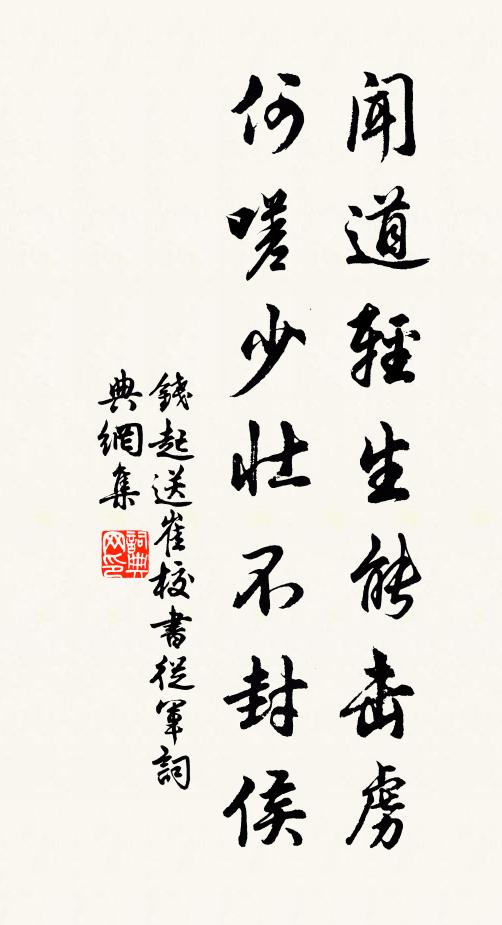 聞道輕生能击虜
何嗟少壯不封侯
錢起送崔校書從軍詞
典網集
詞典网印